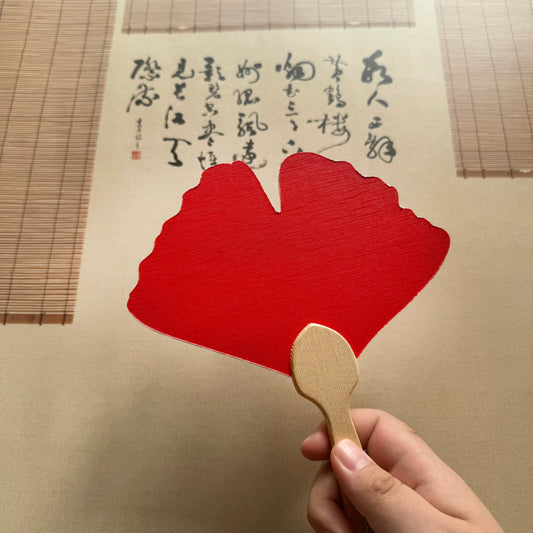 故人西辭
黄鶴樓
烟花三月下
揚州孤帆遠
影碧空盡惟
見長江天
際流